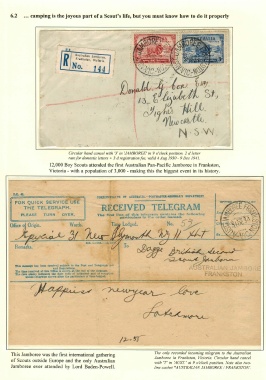 6.2 ... camping is the joyous part of a Scout's life, but you must know how to do it properly
R
No. 144
AUSTRALIA
Donald G Cox Esq
13 Elizabeth St
Tighes Hill
Newcastle
N.S.W.
Circular hand cancel with 'F' in 'JAMBOREE' to 9 o'clock position. 2 d letter
rate for domestic letters + 3 d registration fee, valid 4 Aug 1930 - 9 Dec 1941.
12,000 Boy Scouts attended the first Australian Pan-Pacific Jamboree in Frankston,
Victoria - with a population of 3,000 - making this the biggest event in its history.
FOR QUICK SERVICE USE
THE TELEGRAM.
PLEASE TURN OVER.
RECEIVED TELEGRAM
Office of Origin.
Words.
Special 31 New Plymouth
British Scout
Scout Jamboree
AUSTRALIAN JAMBOREE
FRANKSTON
Happiest newyear love
12.45
This Jamboree was the first international gathering
of Scouts outside Europe and the only Australian
Jamboree ever attended by Lord Baden-Powell.
The only recorded incoming telegram to the Australian
Jamboree in Frankston, Victoria. Circular hand cancel
line cachet "AUSTRALIAN JAMBOREE / FRANKSTON".